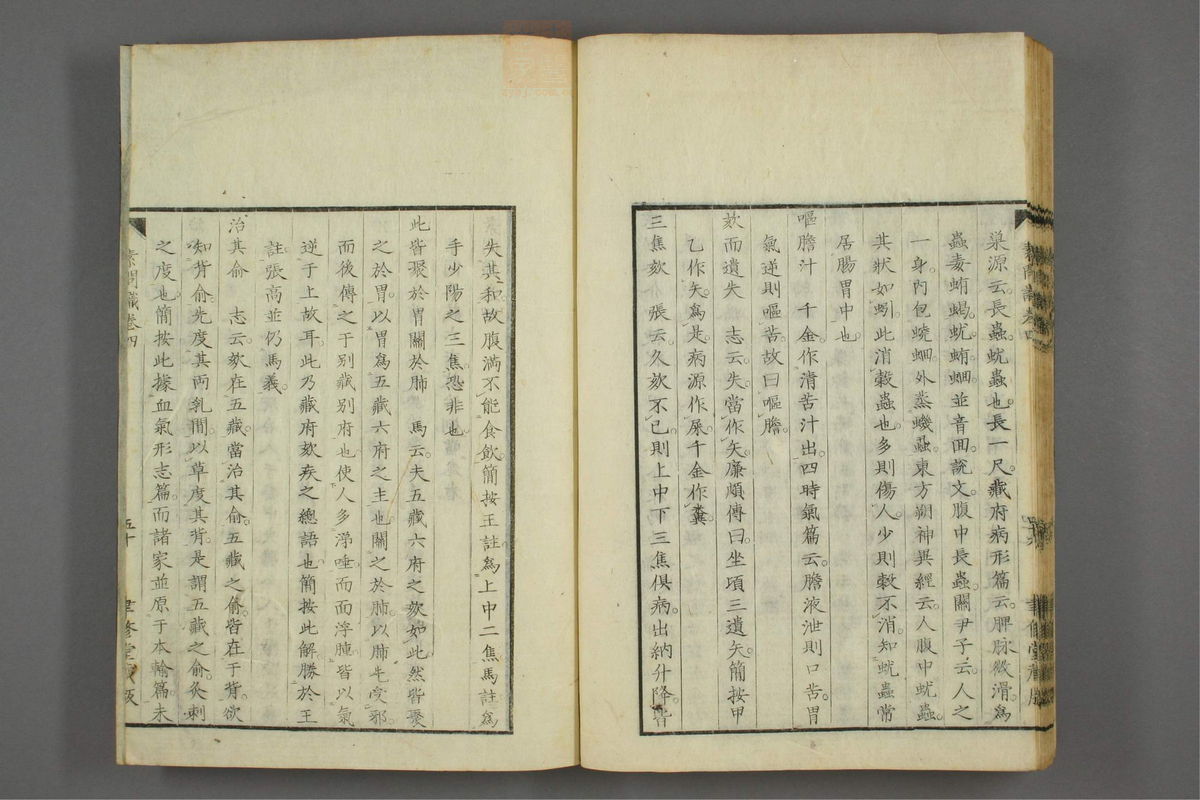 巢源云長蟲蚘蟲也長一尺藏府病形篇云脾脉微滑爲
蟲毒蛕蝎蚘蛕蛔並音囬說文腹中長蟲關尹子云人之
一身內包蟯蛔外蒸蟣蝨東方朔神異經云人腹中蚘蟲
其狀如蚓此消穀蟲也多則傷人少則穀不消知蚘蟲常
居腸胃中也
嘔膽汁　千金作清苦汁出四時氣篇云膽液泄則口苦胃
氣逆則嘔苦故曰嘔膽
欬而遺失　志云失當作矢廉頗傳曰坐頃三遺矢簡按甲
乙作矢爲是病源作屎千金作糞
三焦欬　張云久欬不已則上中下三焦俱病出納升降皆
失其和故腹滿不能食飲簡按王註爲上中二焦馬註爲
手少陽之三焦恐非也
此皆聚於胃關於肺　馬云夫五藏六府之欬如此然皆聚
之於胃以胃爲五藏六府之主也關之於肺以肺先受邪
而後傳之于别藏别府也使人多涕唾而面浮腫皆以氣
逆于上故耳此乃藏府欬疾之總語也簡按此解勝於王
註張高並仍馬義
治其俞　志云欬在五藏當治其俞五藏之俞皆在于背欲
知背俞先度其兩乳間以草度其背是謂五藏之俞灸刺
之度也簡按此據血氣形志篇而諸家並原于本輸篇未
素問識卷四
五十
聿修堂藏版